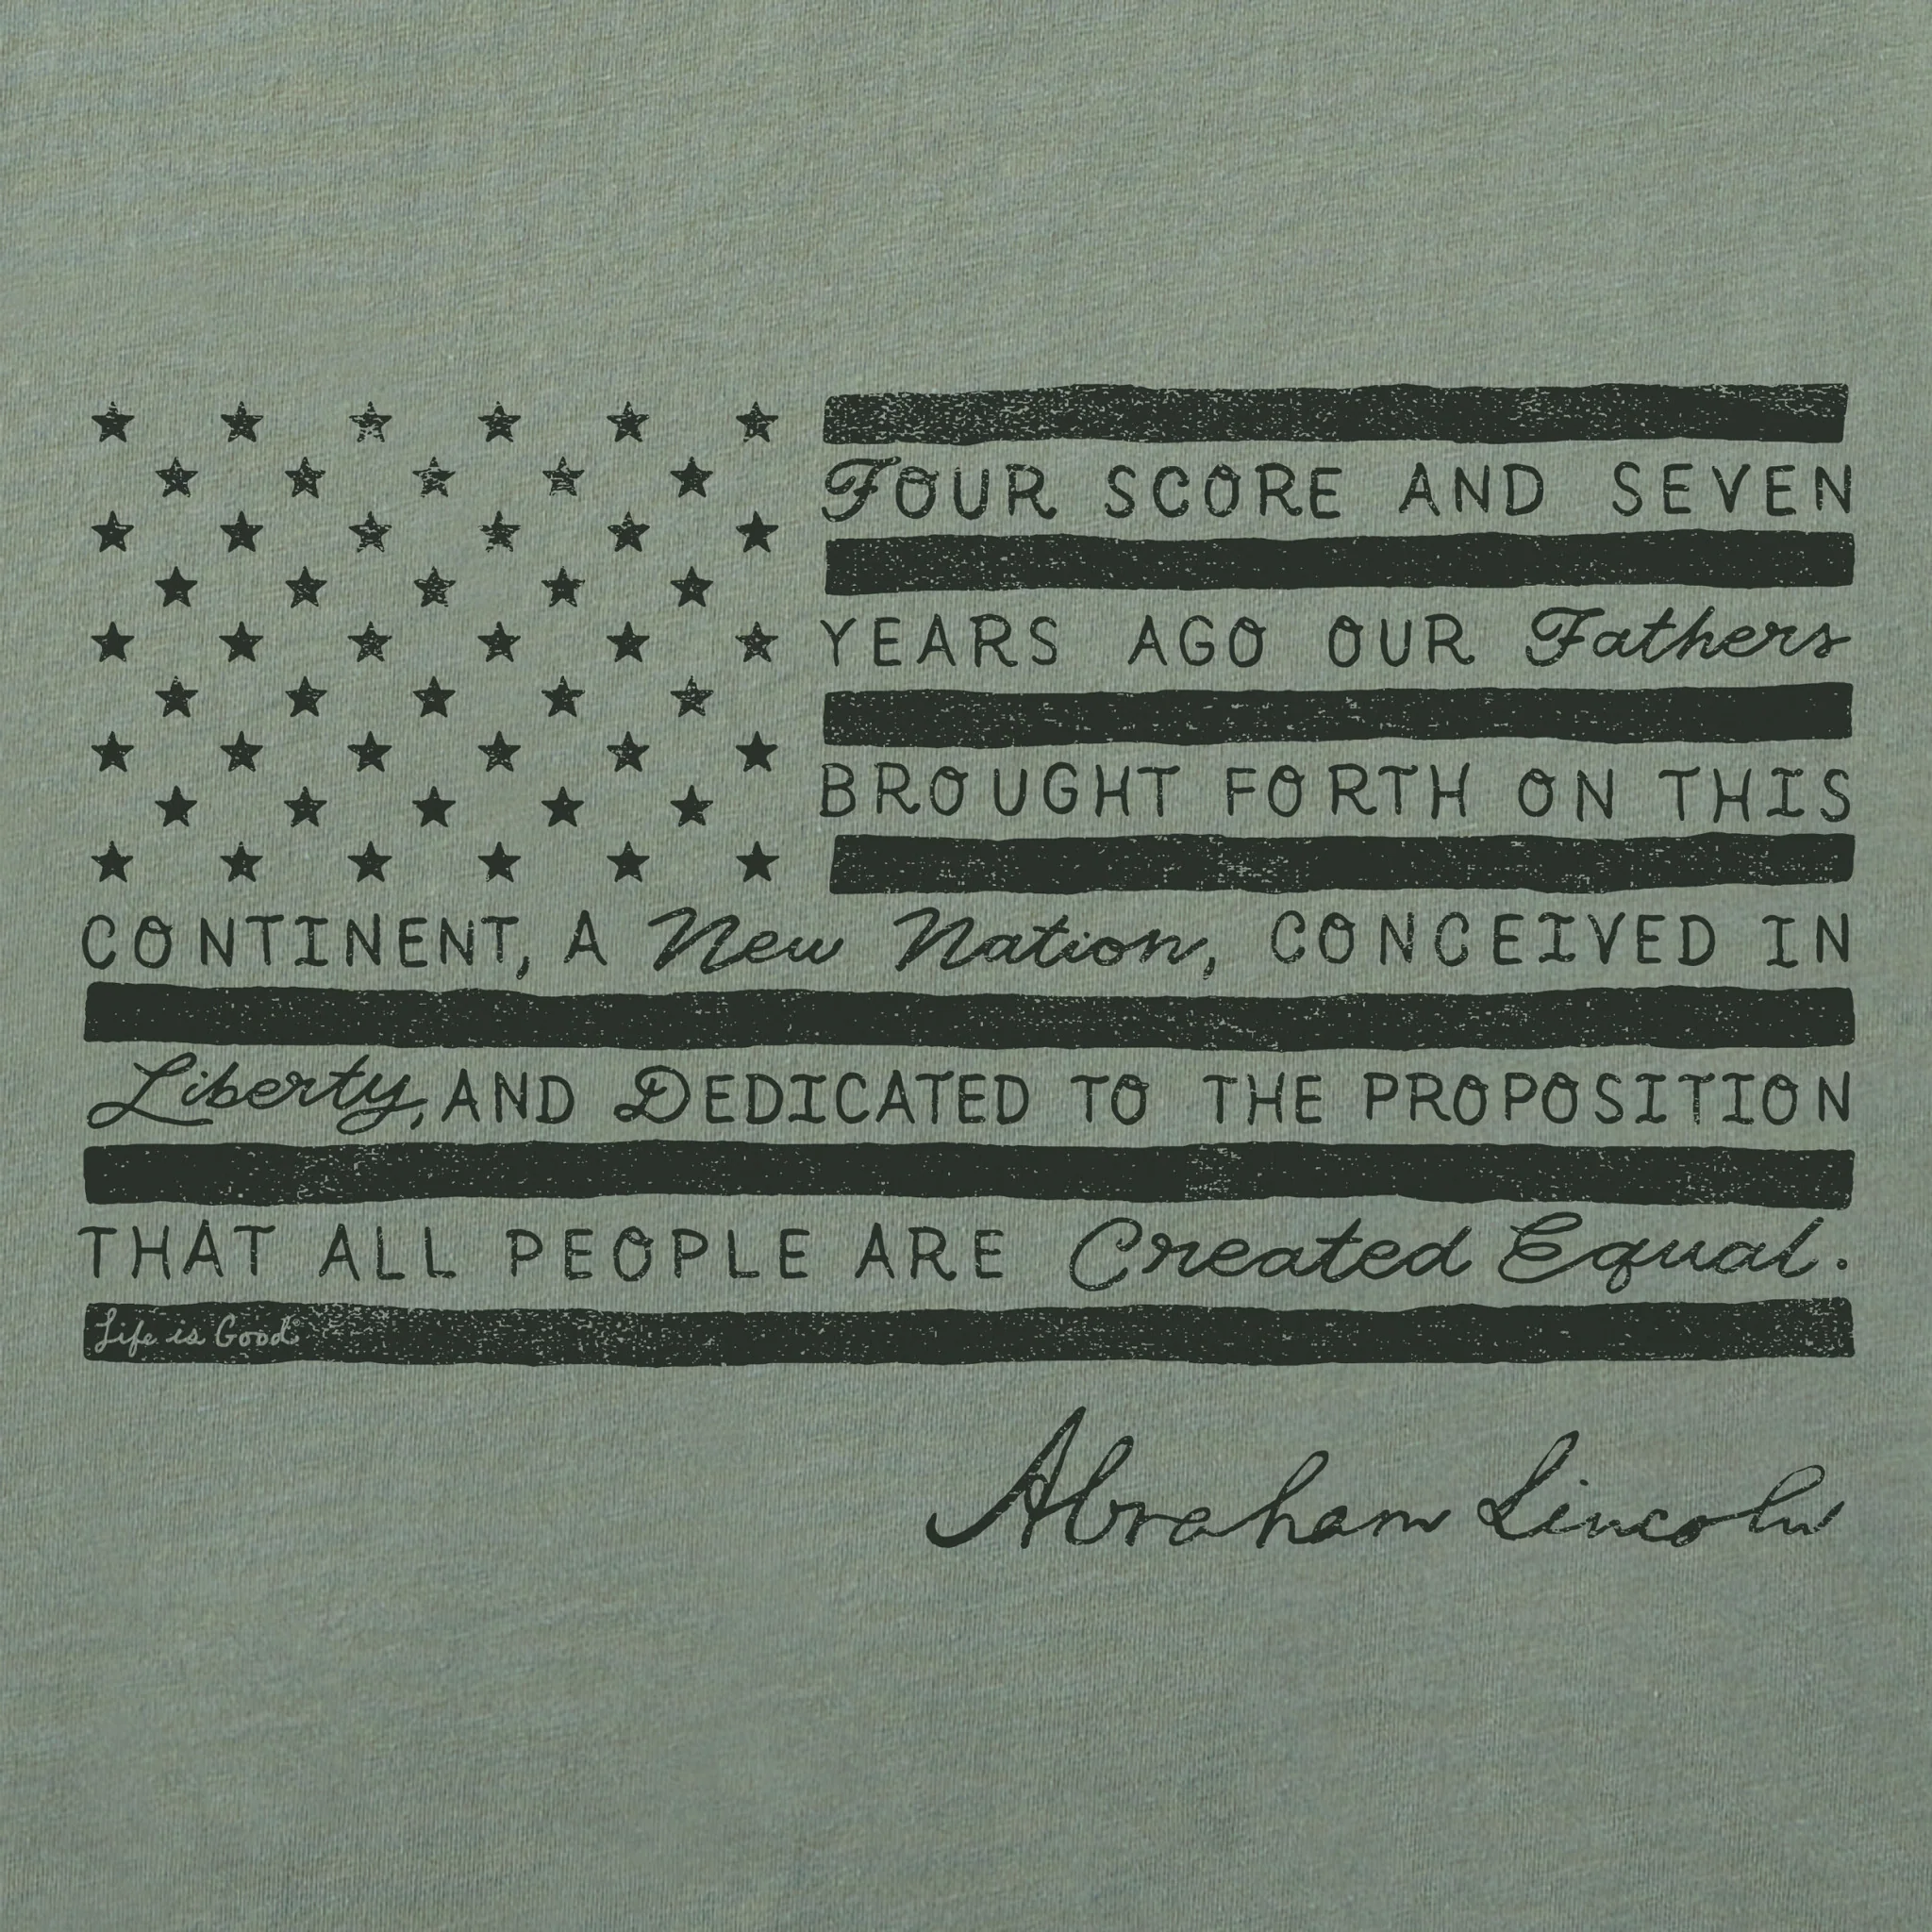 FOUR SCORE AND SEVEN
YEARS AGO OUR Fathers
BROUGHT FORTH ON THIS
CONTINENT, A New Nation, CONCEIVED IN
Liberty, AND DEDICATED TO THE PROPOSITION
THAT ALL PEOPLE ARE Created Equal.
Life is Good
Abraham Lincoln